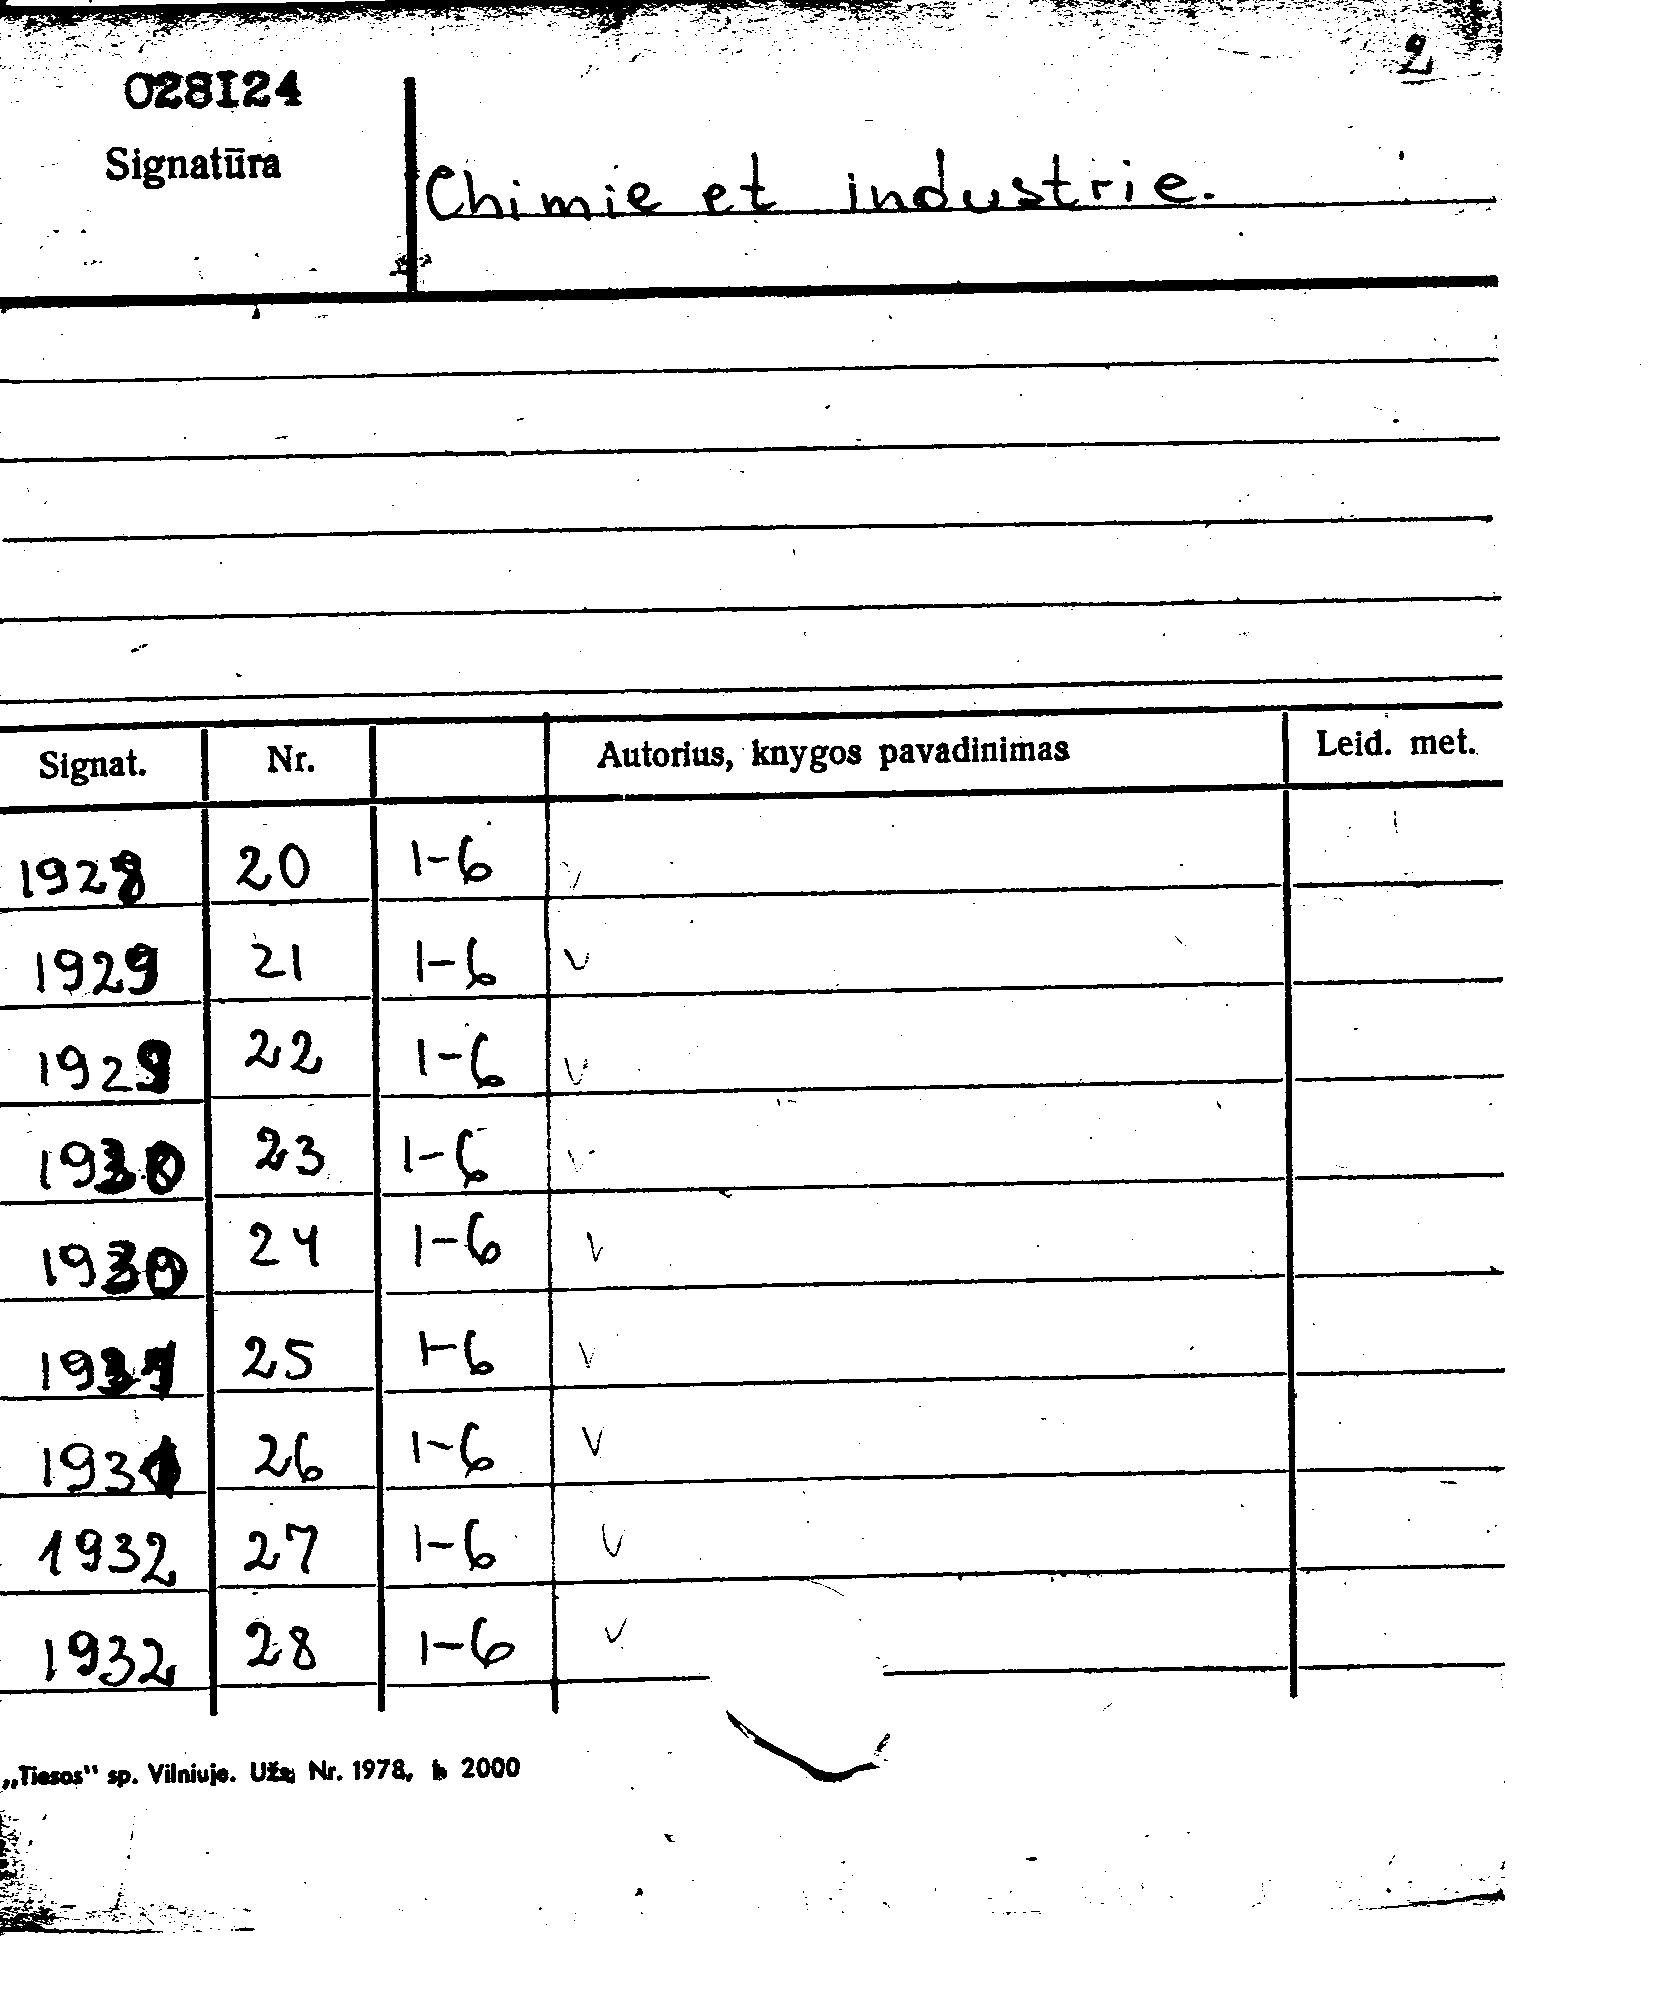 2
028I24
Signatūra
Chimie et industrie.
Signat. Nr. Autorius, knygos pavadinimas Leid. met.
1928 20 1-6 v
1929 21 1-6 v
1929 22 1-6 v
1930 23 1-6 v
1930 24 1-6 v
1931 25 1-6 v
1931 26 1-6 v
1932 27 1-6 v
1932 28 1-6 v
„Tiesos" sp. Vilniuje. Užs. Nr. 1978, 2000